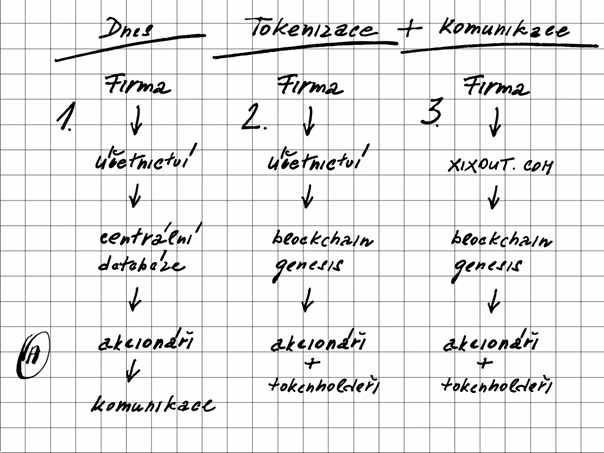 Dnes
Tokenizace + Komunikace
1.
Firma
účetnictví
centrální
databáze
akcionáři
komunikace
2.
Firma
účetnictví
blockchain
genesis
akcionáři
+
tokenholdeři
3.
Firma
XIXOUT.COM
blockchain
genesis
akcionáři
+
tokenholdeři